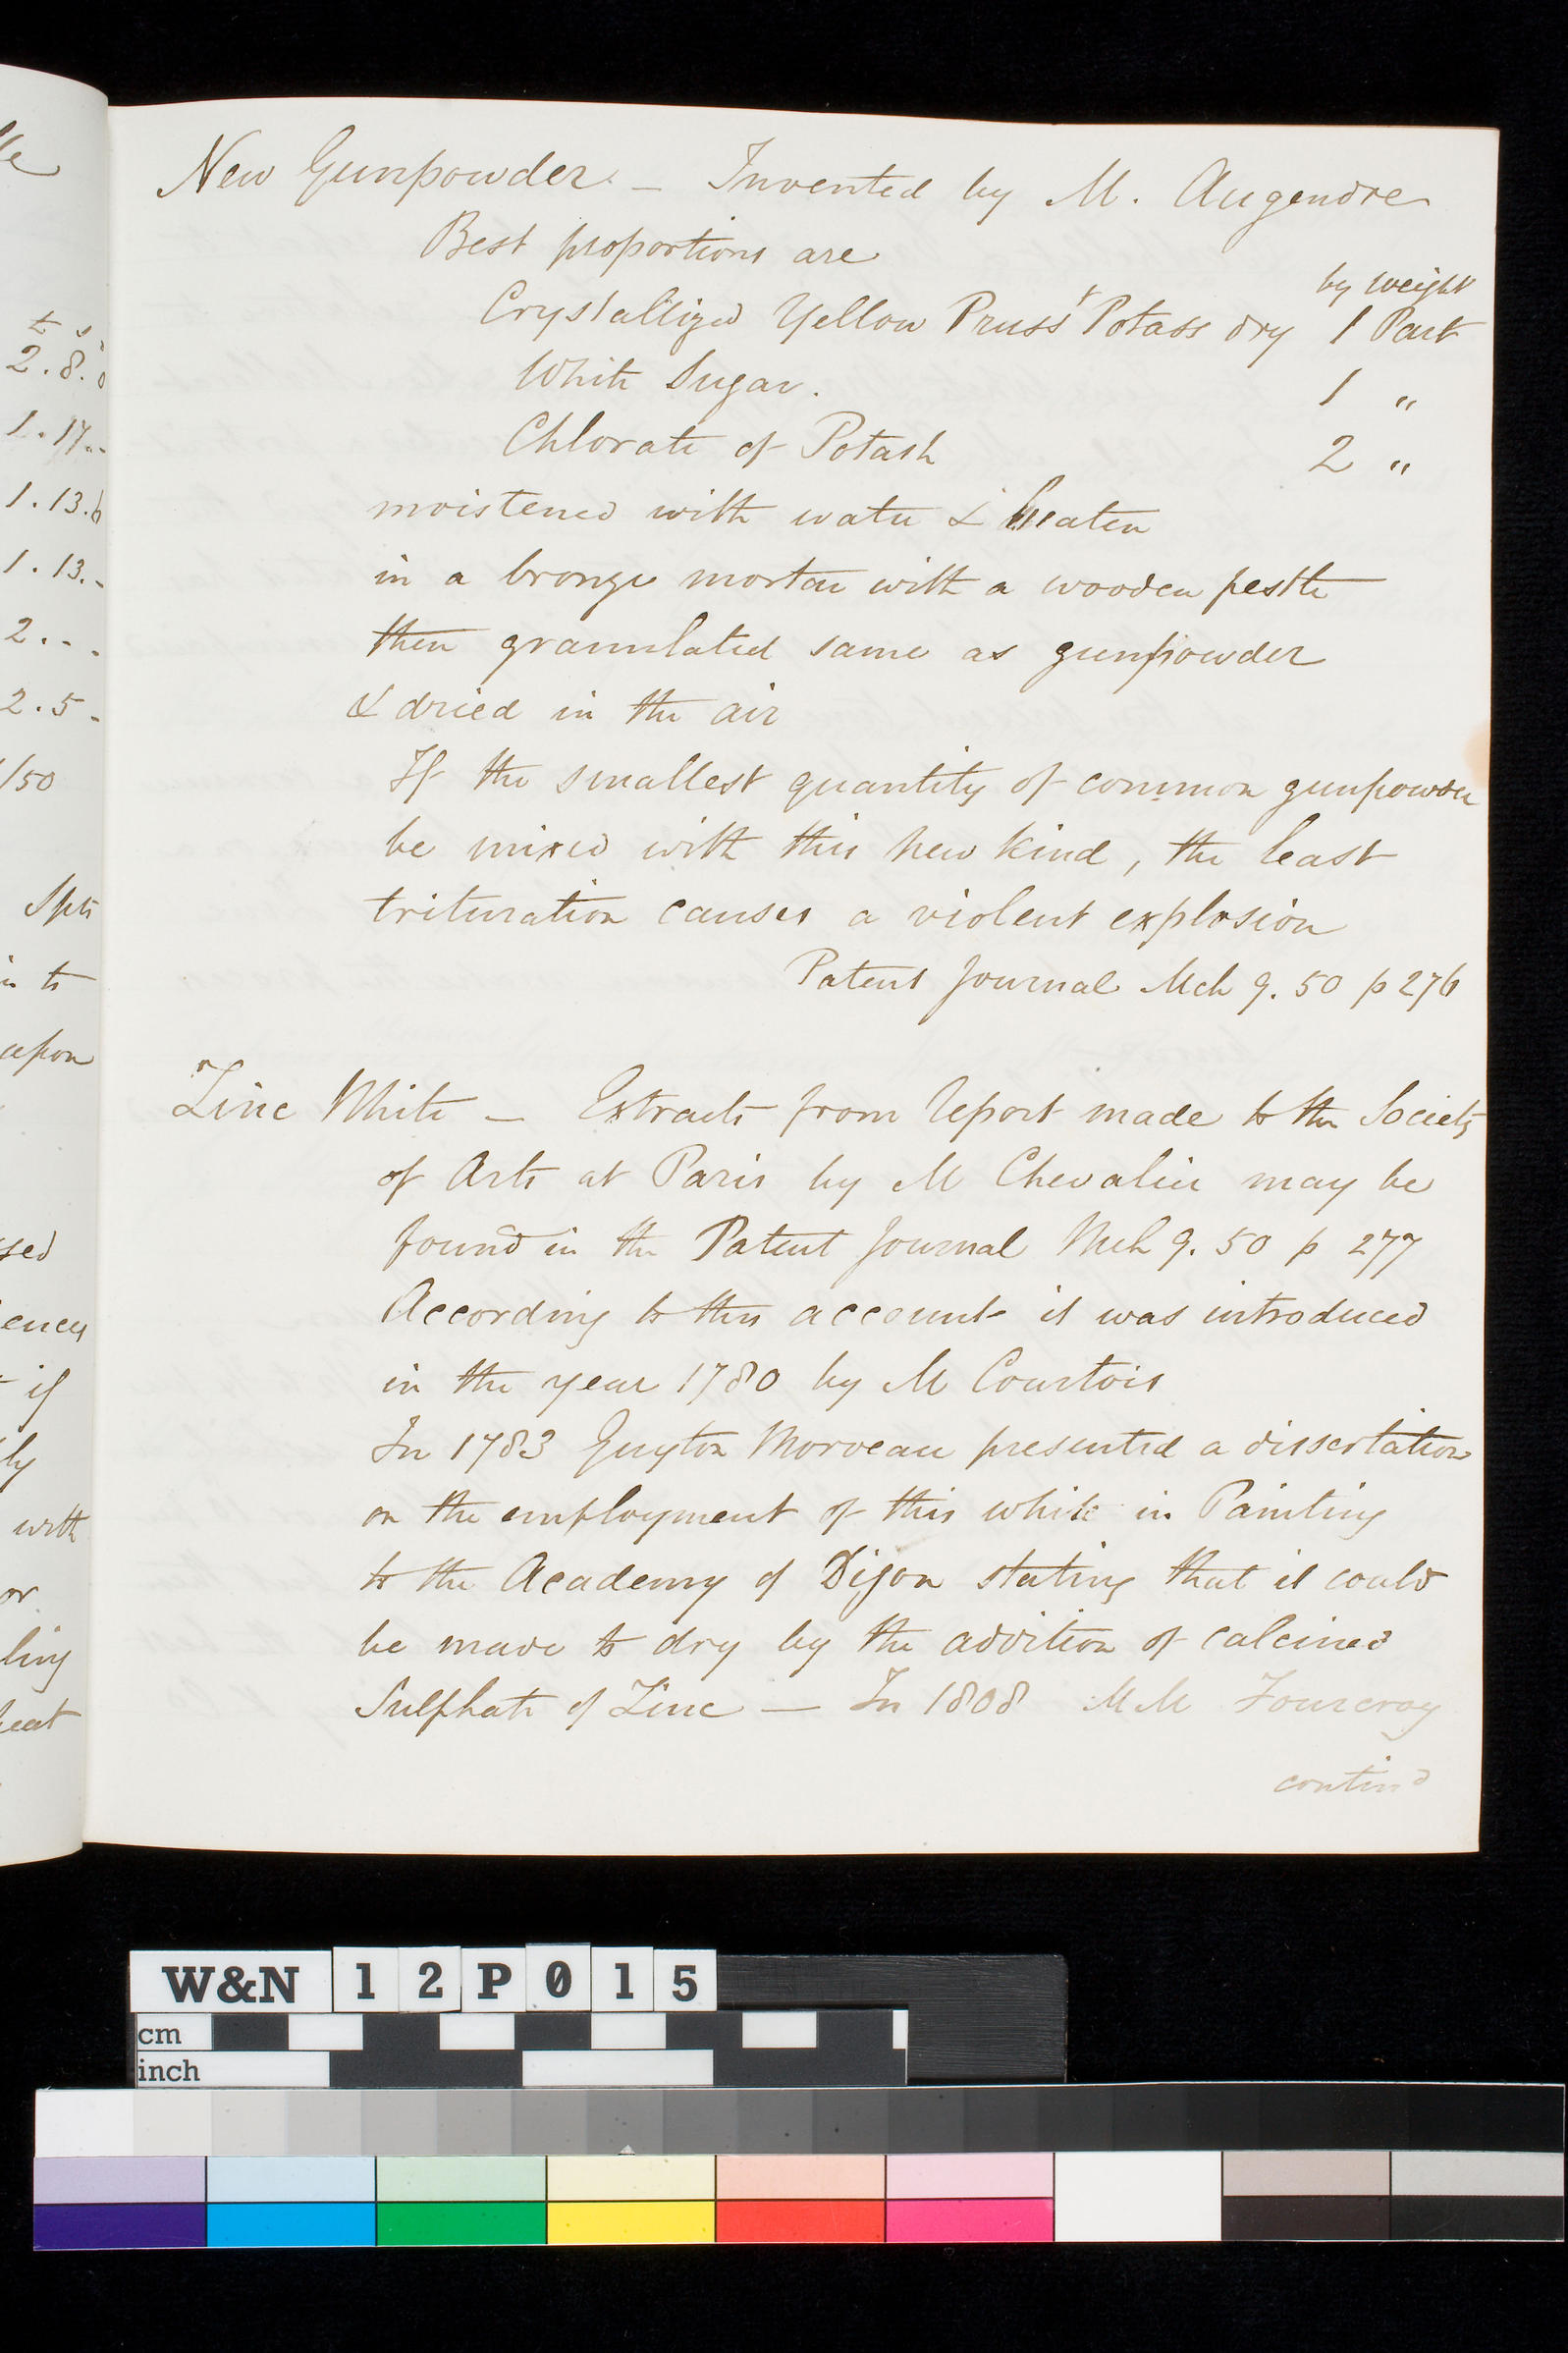 New Gunpowder. – Invented by M. Augendre
Best proportions are
by weight
Crystallized Yellow Pruss^t Potass dry 1 Part
White Sugar. 1 "
Chlorate of Potash 2 "
moistened with water & beaten
in a bronze mortar with a wooden pestle
then granulated same as gunpowder
& dried in the air
If the smallest quantity of common gunpowder
be mixed with this new kind, the least
trituration causes a violent explosion
Patent Journal Mch 9. 50 p 276
Zinc White – Extracts from report made to the Society
of Arts at Paris by M Chevalier may be
found in the Patent Journal Mch 9. 50 p 277
According to this account it was introduced
in the year 1780 by M Courtois
In 1783 Guyton Morveau presented a dissertation
on the employment of this white in Painting
to the Academy of Dijon stating that it could
be made to dry by the addition of calcined
Sulphate of Zinc – In 1808 MM Fourcroy
contind
2.8.
1.17..
1.13.6
1.13.-
2.-.
2.5-
/50
in to
upon
if
with
or
W&N 12P015
cm
inch